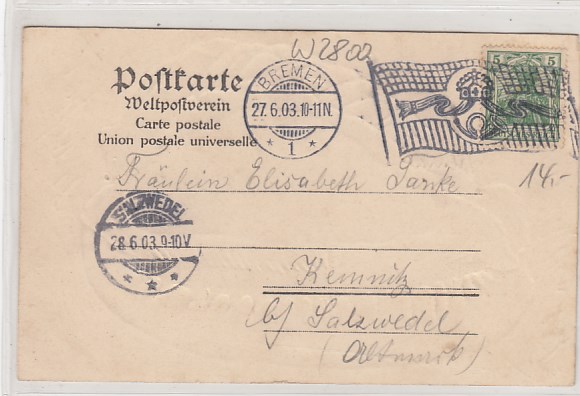 W2800
Postkarte
Weltpostverein
Carte postale
Union postale universelle
BREMEN
27.6.03.10-11N.
* 1 *
5 5
14.-
Fräulein Elisabeth
SALZWEDEL
28.6.03.9-10V
* * *
Kemnitz
b/ Salzwedel
(Altmark)